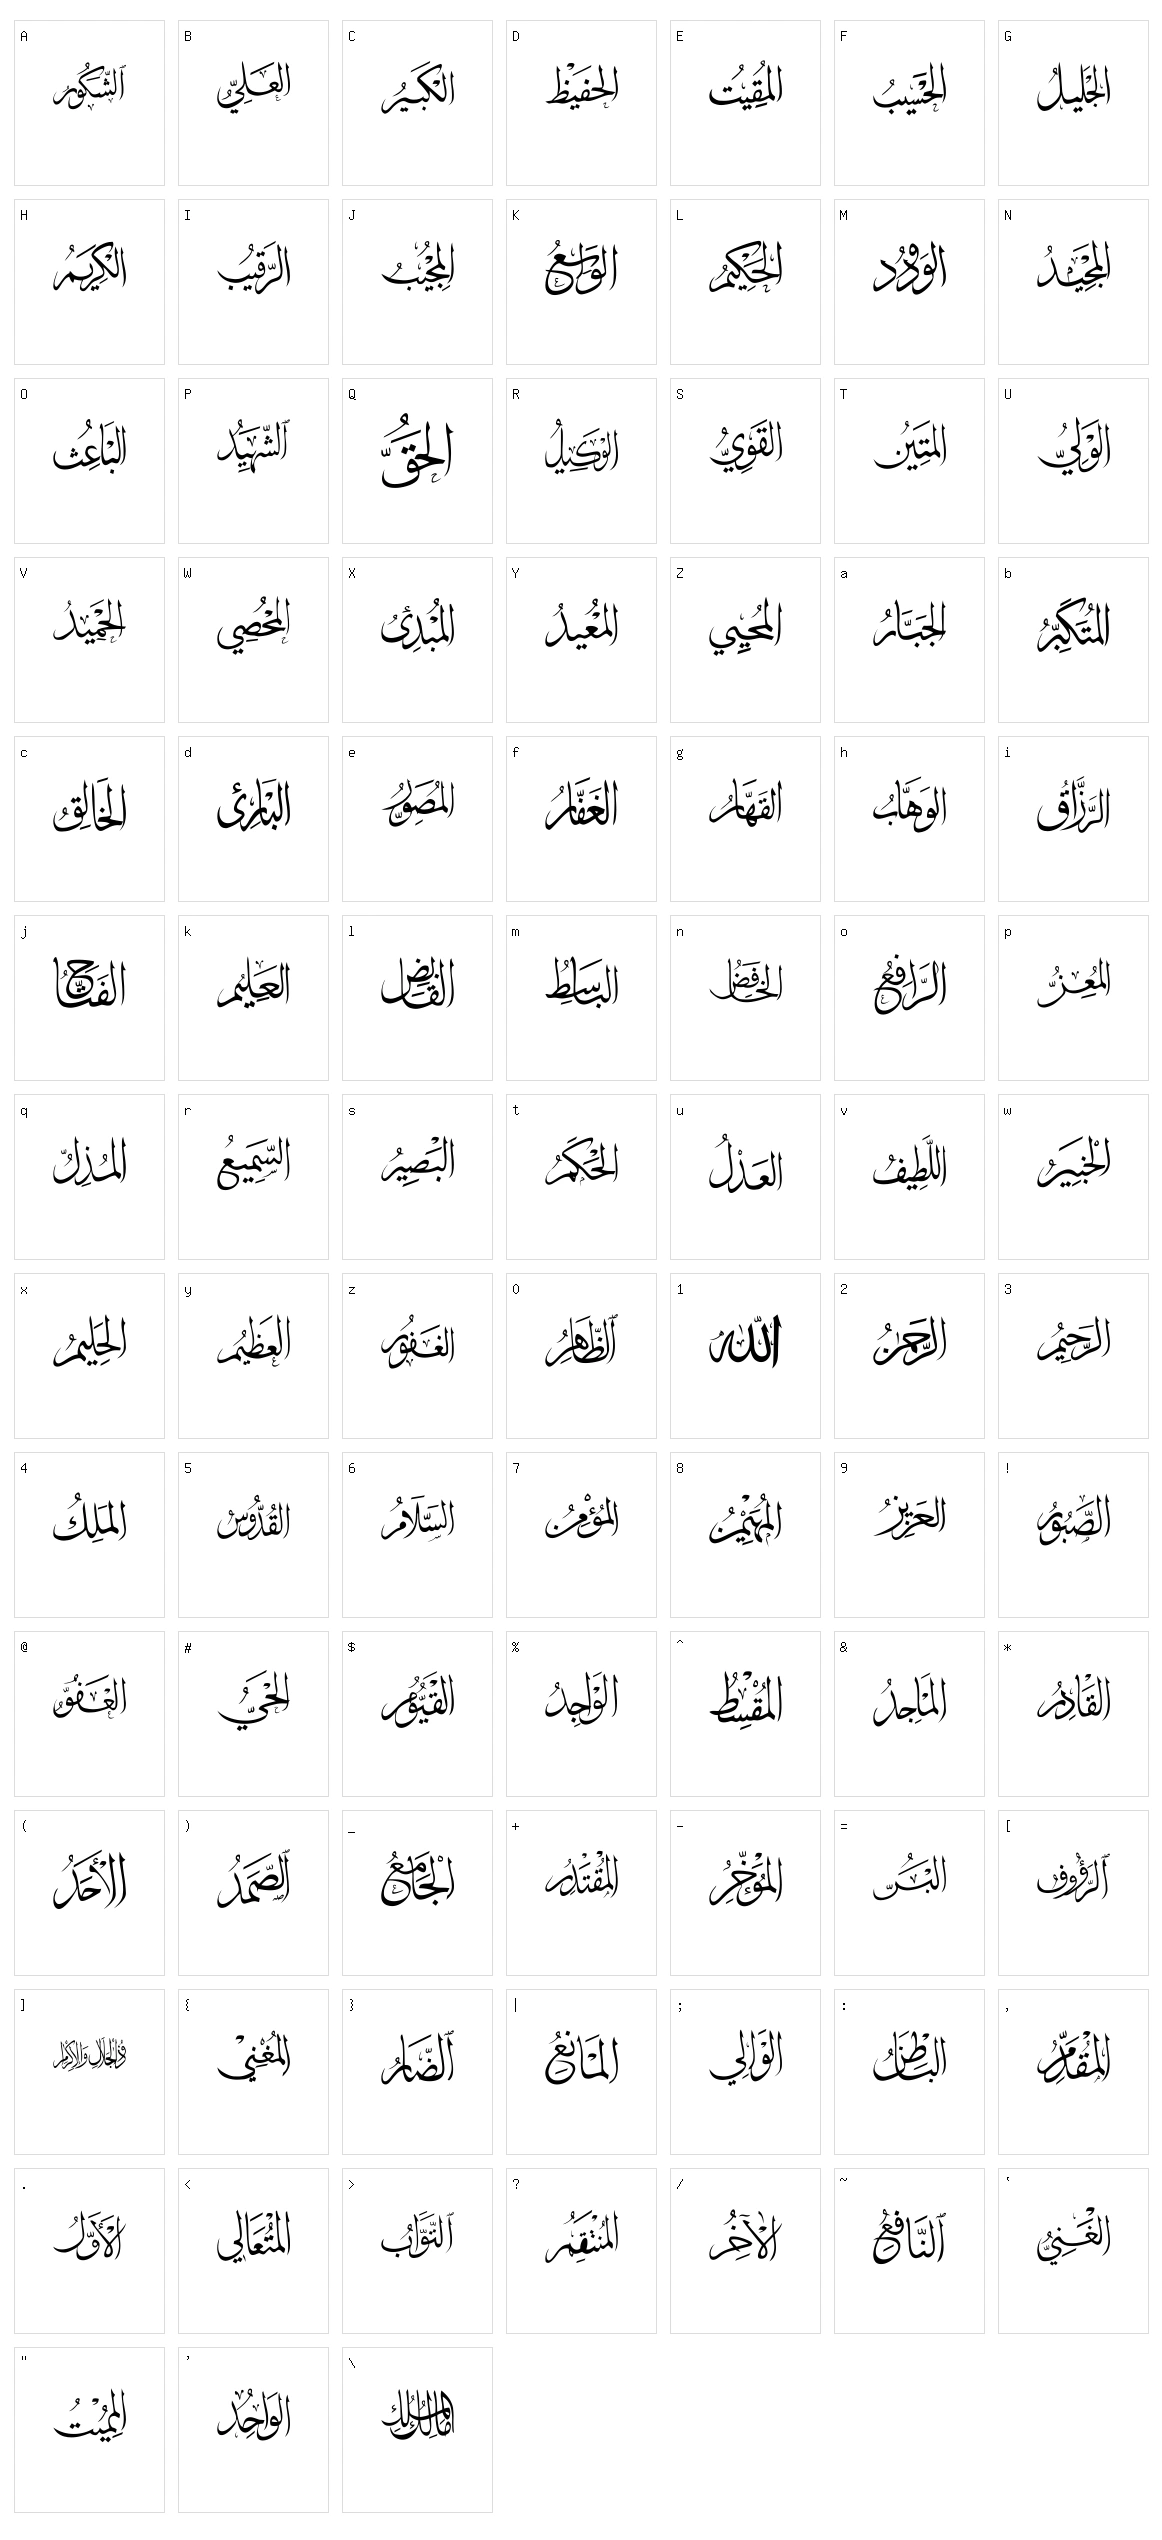 A B C D E F G
ٱلشَّكُور العَلِيُّ الكَبِيرُ الحَفِيظُ المُقِيتُ الحَسِيبُ الجَلِيلُ
H I J K L M N
الكَرِيمُ الرَّقِيبُ المُجِيبُ الوَاسِعُ الحَكِيمُ الوَدُودُ المَجِيدُ
O P Q R S T U
البَاعِثُ ٱلشَّهِيدُ الحَقُّ الوَكِيلُ القَوِيُّ المَتِينُ الوَلِيُّ
V W X Y Z a b
الحَمِيدُ المُحْصِي المُبْدِئُ المُعِيدُ المُحْيِي الجَبَّارُ المُتَكَبِّرُ
c d e f g h i
الخَالِقُ البَارِئ المُصَوِّرُ الغَفَّارُ القَهَّارُ الوَهَّابُ الرَّزَّاقُ
j k l m n o p
الفَتَّاحُ العَلِيمُ القَابِضُ البَاسِطُ الخَافِضُ الرَّافِعُ المُعِزُّ
q r s t u v w
المُذِلُّ السَّمِيعُ البَصِيرُ الحَكَمُ العَدْلُ اللَّطِيفُ الخَبِيرُ
x y z 0 1 2 3
الحَلِيمُ العَظِيمُ الغَفُورُ ٱلظَّاهِرُ الله الرَّحْمٰنُ الرَّحِيمُ
4 5 6 7 8 9 !
المَلِكُ القُدُّوسُ السَّلَامُ المُؤْمِنُ المُهَيْمِنُ العَزِيزُ الصَّبُورُ
@ # $ % ^ & *
الحَيُّ القَيُّومُ الوَاجِدُ المُقْسِطُ المَاجِدُ القَادِرُ
( ) _ + - = [
الأَحَدُ ٱلصَّمَدُ الجَامِعُ المُقْتَدِرُ المُؤَخِّرُ البَرُّ ٱلرَّؤُوفُ
] { } | ; : ,
ذُو الجَلَالِ وَالإِكْرَامِ المُغْنِي ٱلضَّارُ المَانِعُ الوَالِي البَاطِنُ المُقَدِّمُ
. < > ? / ~ ‛
الأَوَّلُ المُتَعَالِي ٱلتَّوَّابُ المُنْتَقِمُ الآخِرُ ٱلنَّافِعُ الغَنِيُّ
" ' \
المُمِيتُ الوَاحِدُ مَالِكُ المُلْكِ